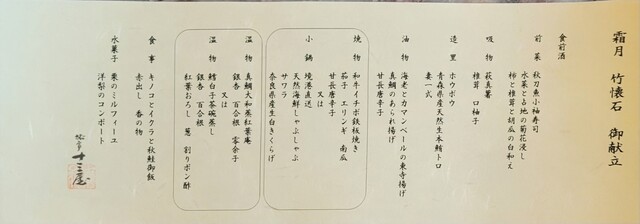 霜月 竹懐石 御献立
食前酒
前菜 秋刀魚小袖寿司
水菜と占地の菊花浸し
柿と椎茸と胡瓜の白和え
吸物 萩真薯
椎茸 口柚子
造里 ホウボウ
青森県産天然生本鮪トロ
妻一式
油物 海老とカマンベールの東寺揚げ
真鯛のあられ揚げ
甘長唐辛子
焼物 和牛イチボ鉄板焼き
茄子 エリンギ 南瓜
甘長唐辛子
又は
小鍋 境港直送
天然海鮮しゃぶしゃぶ
サワラ
奈良県産生白きくらげ
温物 真鯛大和蒸紅葉庵
銀杏 百合根 零余子
又は
温物 鱈白子茶碗蒸し
銀杏 百合根
紅葉おろし 葱 割りポン酢
食事 キノコとイクラと秋鮭御飯
赤出し 香の物
水菓子 栗のミルフィーユ
洋梨のコンポート
十三屋